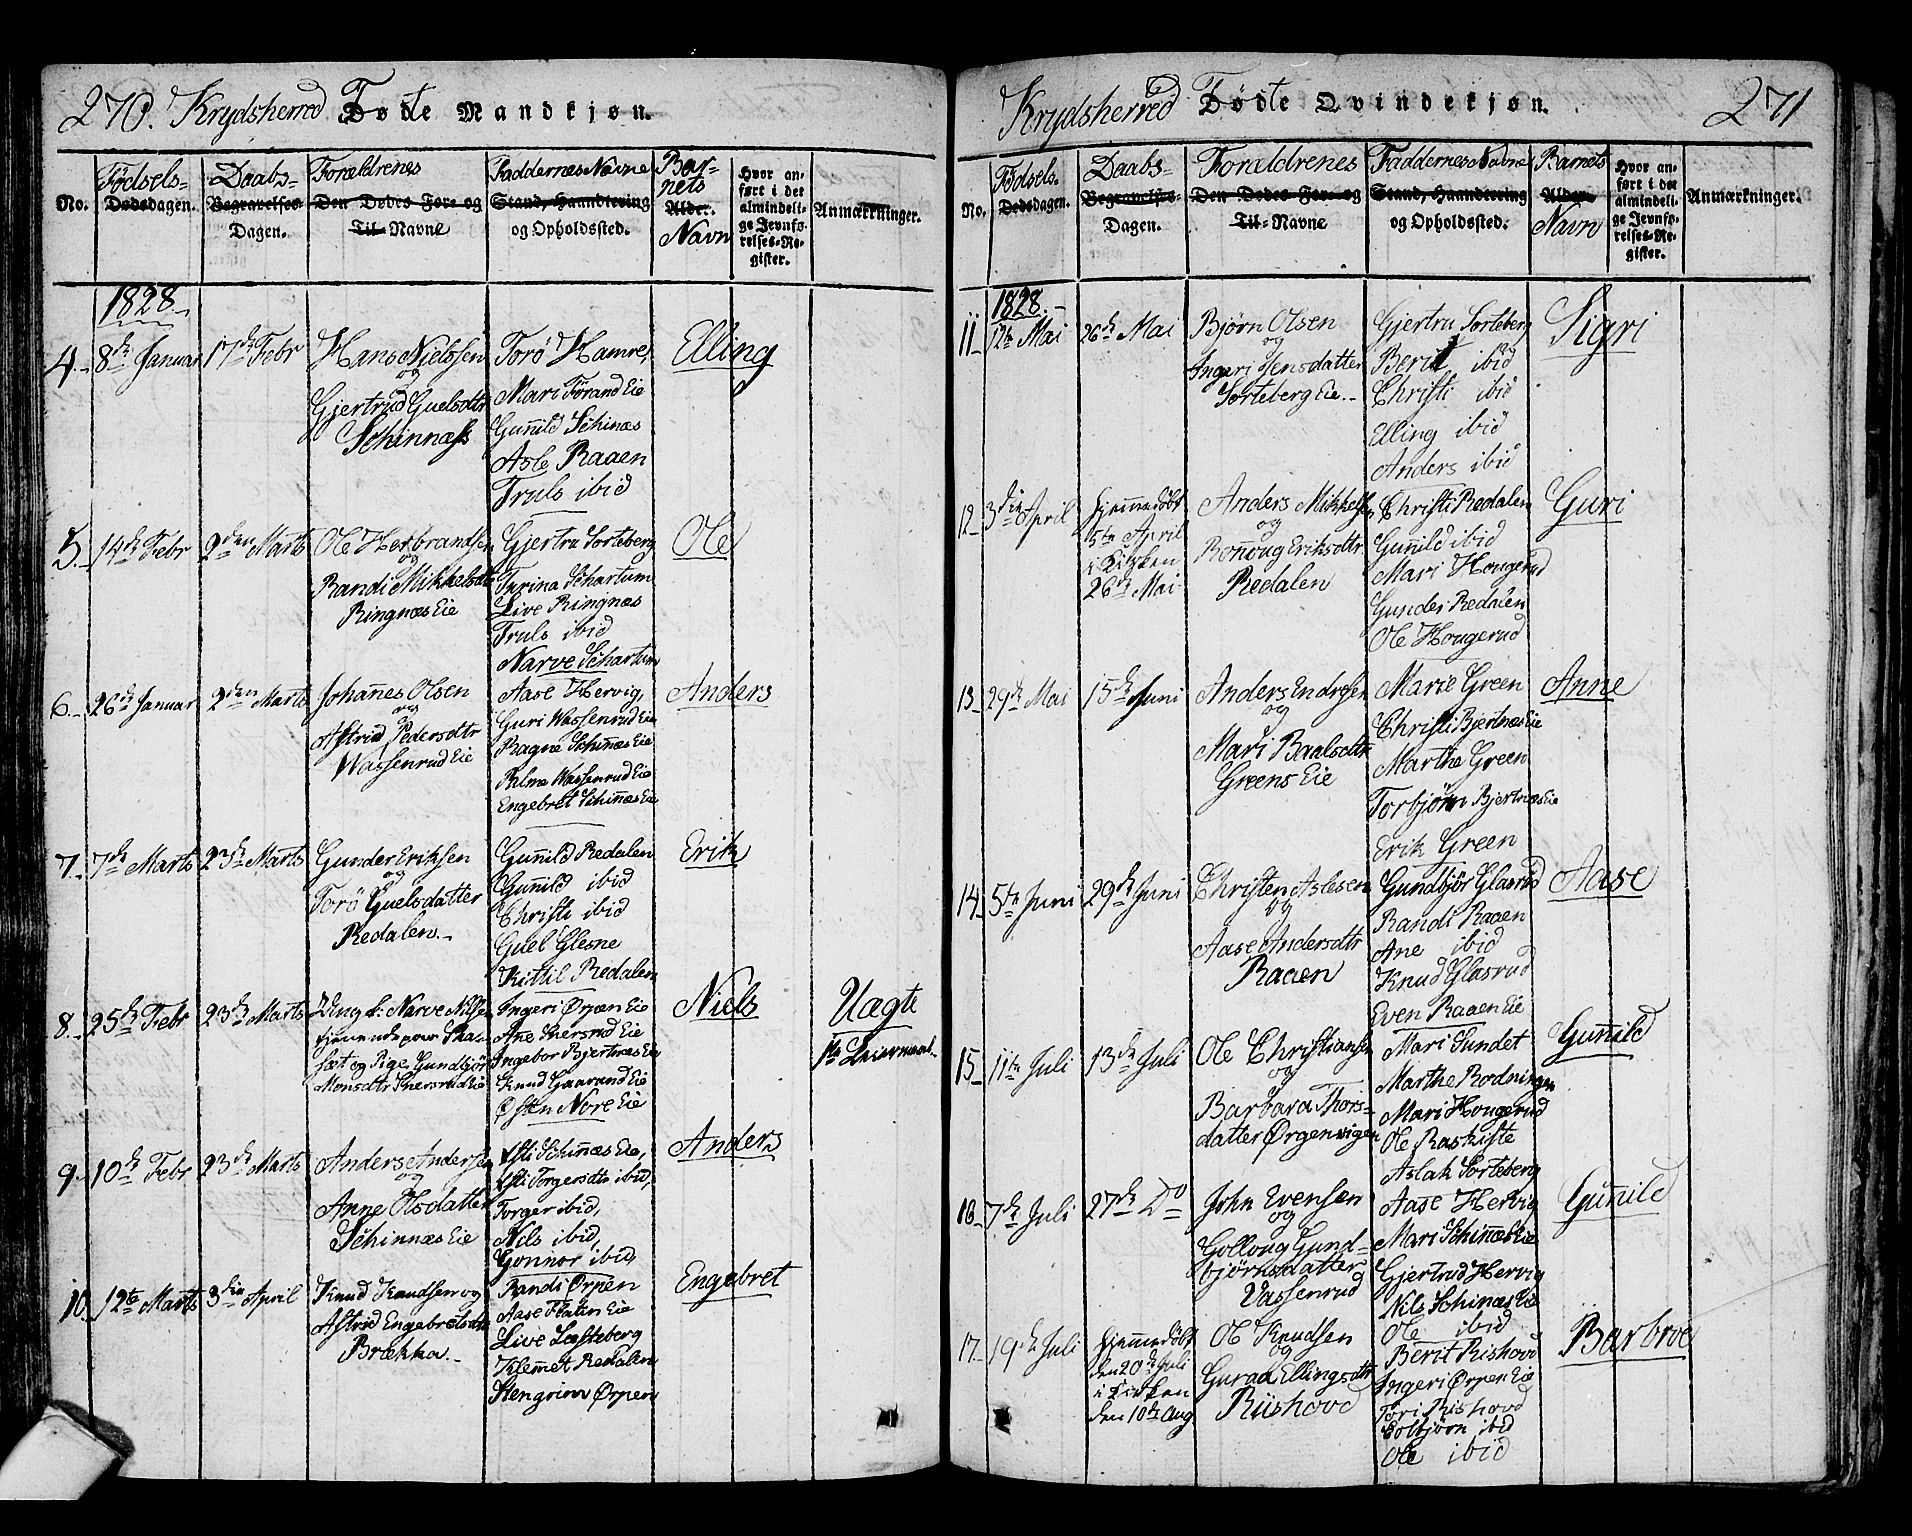 270. Krydsherred Fødte Mandkjøn.
No. Fødsels-dagen. Daabs-Dagen. Forældrenes Navne Faddernes Navne og Opholdssted. Barnets Navn Hvor anført i det almindelige Jevnførelses-Register. Anmærkninger.
1828.
4. 8de Januar 17de Febr Hans Nielssen
og
Gjertrud Guelsdtr
Schinnæss
Torö Hamre,
Mari Förand Eie
Guñild Schinæs
Asle Raaen
Truls ibid
Elling
5. 14de Febr 2den Marts Ole Herbrandsen
og
Randi Mikkelsdtr
Ringnæs Eie
Gjertru Sorteberg
Turina Schartum
Live Ringnæs
Truls ibid
Narve Schartum
Ole
6. 26de Januar 2den Marts Johañes Olsen
og
Astrid Pedersdtr
Wassenrud Eie
Aase Hervig,
Guri Wassenrud Eie
Ragne Schiñæs Eie
Palme Wassenrud Eie
Engebret Schiñæs Eie
Anders
7. 7de Marts 23de Marts Gunder Eriksen
og
Torö Guelsdatter
Redalen.
Guñild Redalen
Guñild ibid
Christi ibid
Guel Glesne
Kittil Redalen
Erik
8. 25de Febr 23de Marts Ung k: Narve Nilsen
tjenende paa
og Pige Gundbjör
Monsdtr Snersrud Eie
Ingeri Ørpen Eie
Ane Snersrud Eie
Ingebor Bjertnæs Eie
Knud Gaarand Eie
Østen Nore Eie
Niels
Uægte
1te Leiermaal.
9. 10de Febr 23de Marts Anders Andersen
og
Anne Olsdatter
Schinnæs Eie
Schiñæs Eie,
Torgersdtr ibid,
Torger ibid,
Nils ibid,
Gonnor ibid,
Anders
10. 12te Marts 3die April Knud Knudsen og
Astrid Engebretsdtr
Brækka.
Randi Ørpen
Aase Flaten Eie
Live Lesteberg
Klemmet Redalen
Stengrim Ørpen
Engebret
Krydsherred Fødte Qvindekjøn. 271
No. Fødsels-dagen. Daabs-Dagen. Forældrenes Navne Faddernes Navne og Opholdssted. Barnets Navn Hvor anført i det almindelige Jevnførelses-Register. Anmærkninger.
1828.
11. 12te Mai 26de Mai Bjørn Olsen
og
Ingeri Jensdatter
Sorteberg Eie.
Gjertru Sorteberg
Berit ibid
Christi ibid
Elling ibid
Anders ibid
Sigri
12. 3die April hjemmedöbt
5te April
i Kirken
26de Mai
Anders Mikkelsen
og
Roñoug Eriksdtr.
Redalen
Christi Redalen
Guñild ibid
Mari Hougerud
Gunder Redalen
Ole Hougerud
Guri
13. 29de Mai 15de Juni Anders Endresen
og
Mari Paalsdtr
Greens Eie
Marie Green
Christi Bjertnæs Eie
Marthe Green
Torbjörn Bjertnæs Eie
Erik Green
Anne
14. 5te Juni 29de Juni Christen Aslesen
og
Aase Andersdtr
Raaen
Gundbjör Glasrud
Randi Raaen
Ane ibid
Knud Glasrud
Even Raaen Eie
Aase
15. 11te Juli 13de Juli Ole Christiansen
og
Barbara Thorsdatter Ørgenvigen
Mari Sundet
Marthe Rodningen
Mari Hougerud
Ole Raskiste
Aslak Sorteberg
Guñild
16. 7de Juli 27de Do John Evensen
og
Golloug Gundbjörnsdatter
Vassenrud
Aase Hervig
Mari Schiñæs Eie
Gjertrud Hervig
Nils Schinæs Eie
Ole ibid
Guñild
17. 19de Juli hjemmedöbt
den 20de Juli
i Kirken
den 10de Aug
Ole Knudsen
og
Guraa Ellingsdtr
Rüshovd
Berit Rishovd
Ingeri Ørpen Eie
Töri Rishovd
Colbjörn ibid
Ole ibid
Barbroe